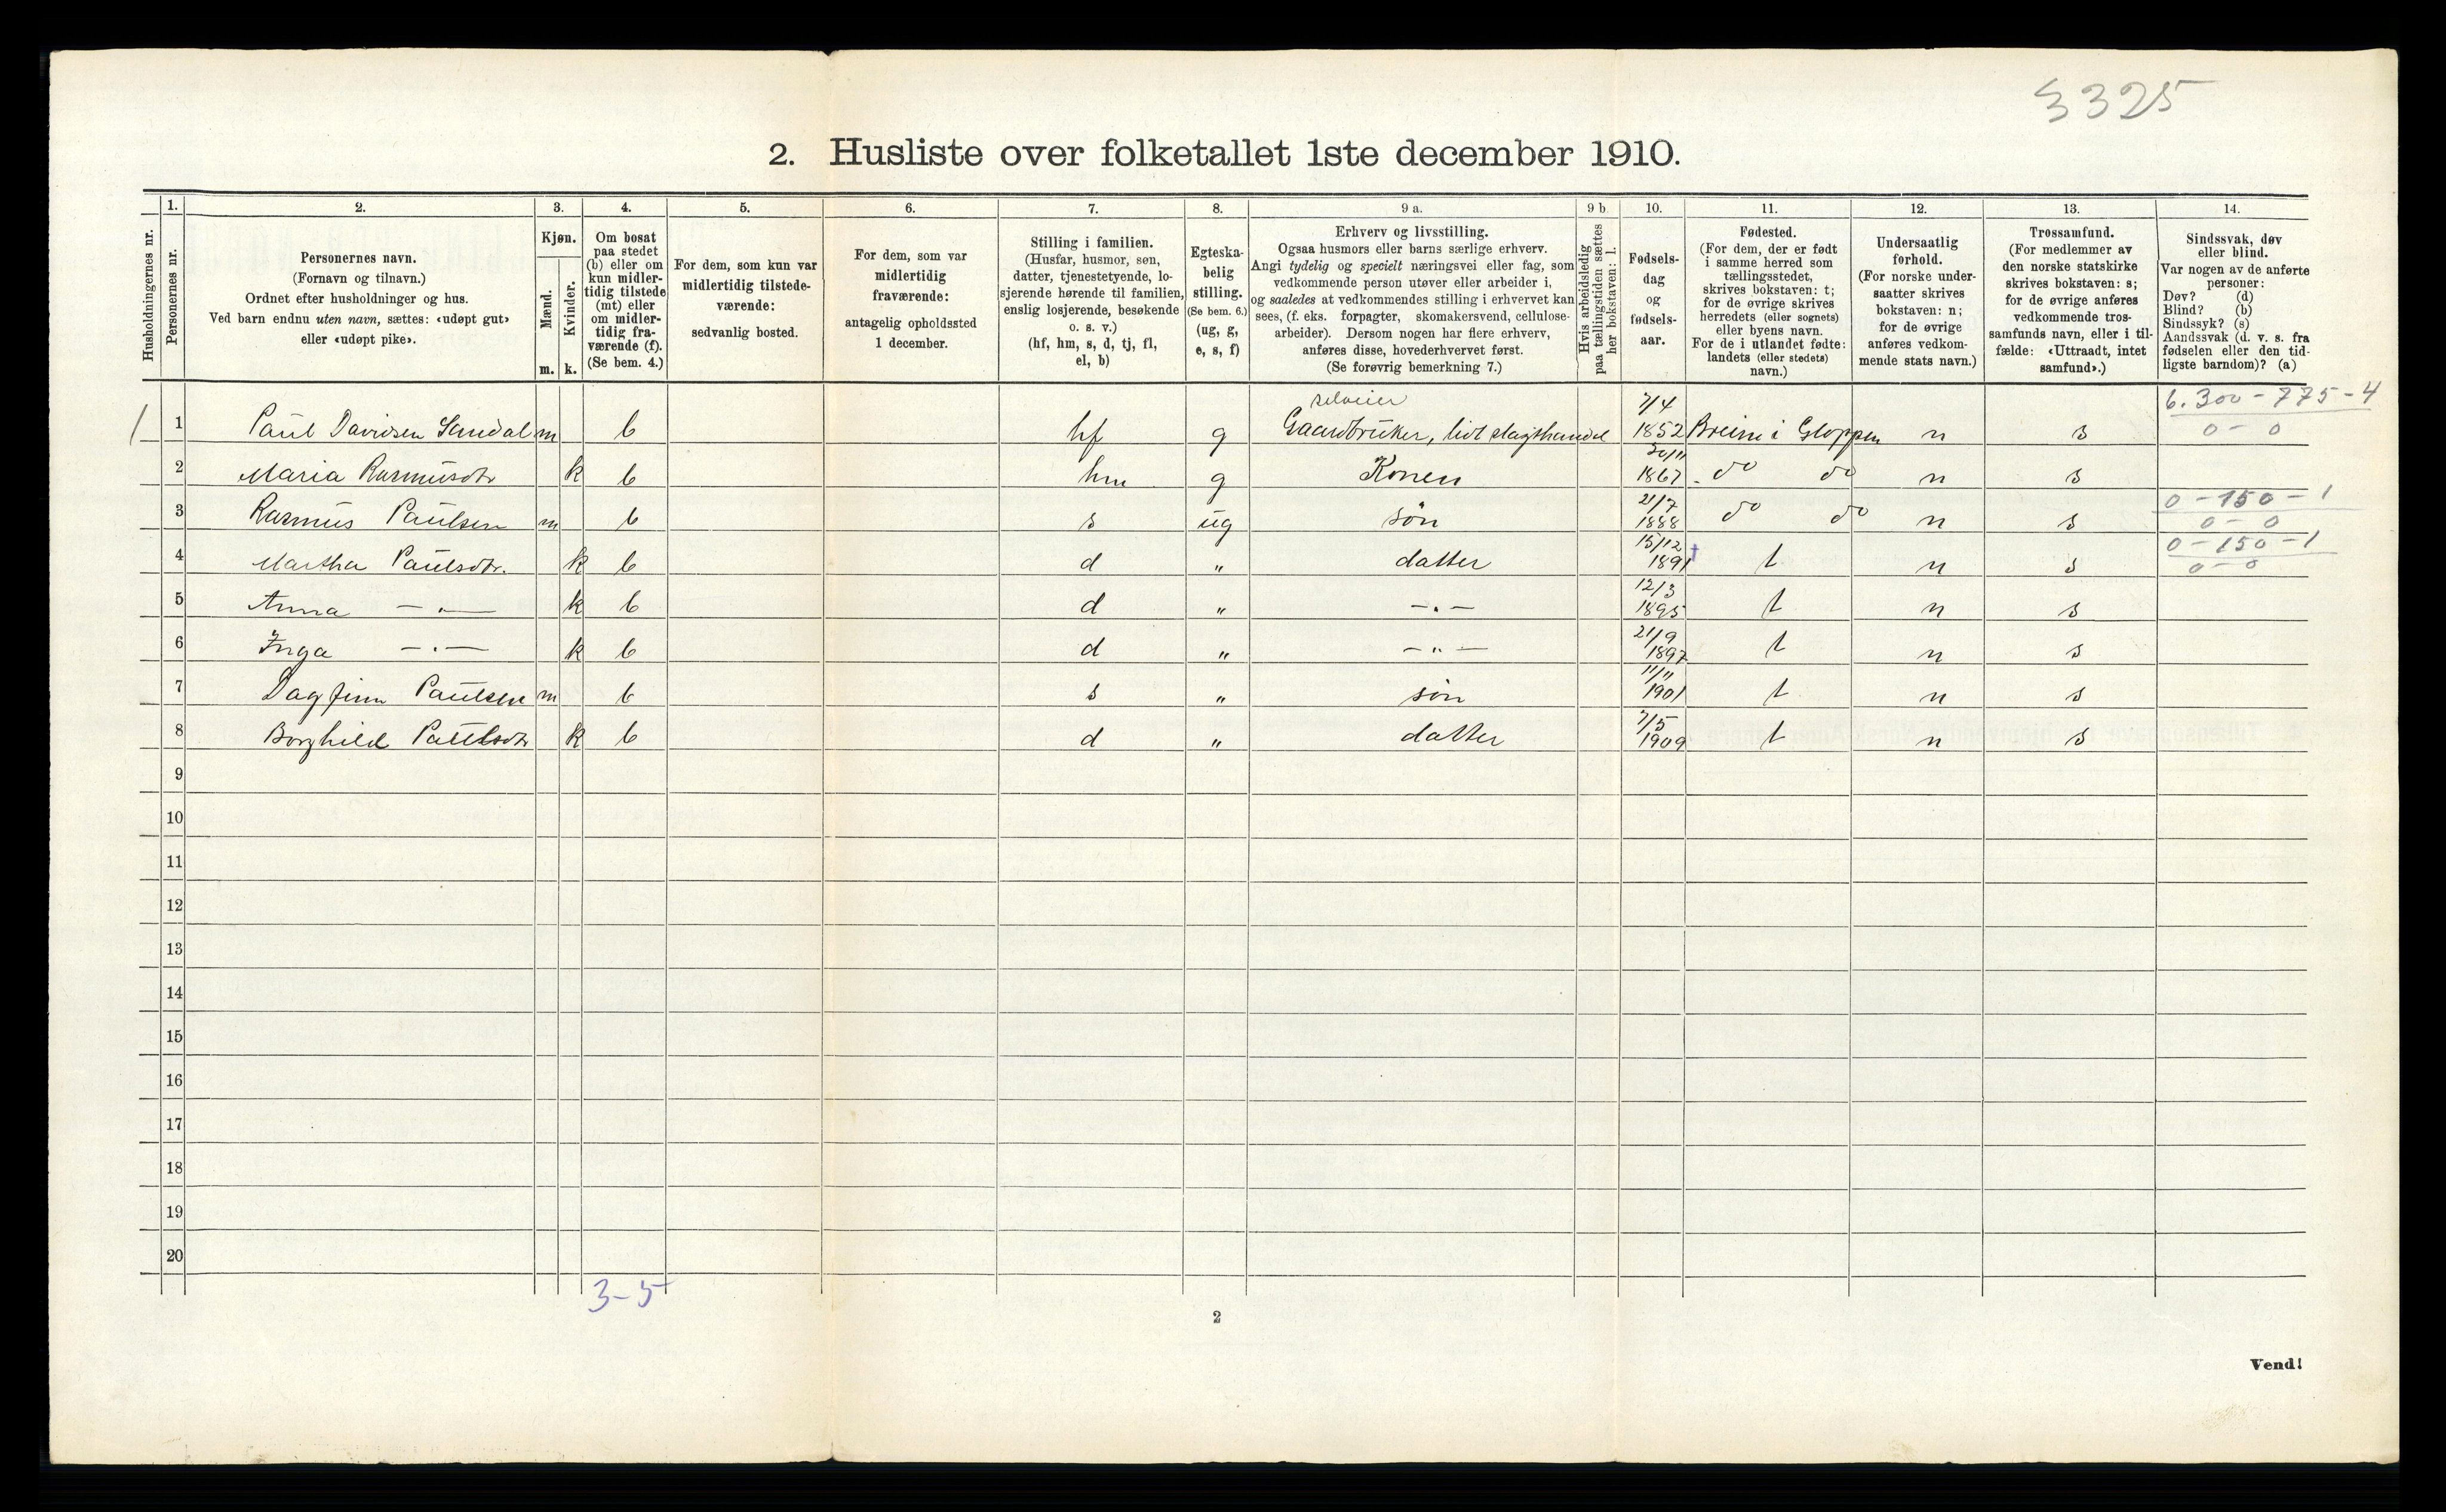 3325
2. Husliste over folketallet 1ste december 1910.
Husholdningernes nr.
1.
Personernes nr.
2.
Personernes navn.
(Fornavn og tilnavn.)
Ordnet efter husholdninger og hus.
Ved barn endnu uten navn, sættes: «udøpt gut»
eller «udøpt pike».
3.
Kjøn.
Mænd.
Kvinder.
m. k.
4.
Om bosat
paa stedet
(b) eller om
kun midler-
tidig tilstede
(mt) eller
om midler-
tidig fra-
værende (f).
(Se bem. 4.)
5.
For dem, som kun var
midlertidig tilstede-
værende:
sedvanlig bosted.
6.
For dem, som var
midlertidig
fraværende:
antagelig opholdssted
1 december.
7.
Stilling i familien.
(Husfar, husmor, søn,
datter, tjenestetyende, lo-
sjerende hørende til familien,
enslig losjerende, besøkende
o. s. v.)
(hf, hm, s, d, tj, fl,
el, b)
8.
Egteska-
belig
stilling.
(Se bem. 6.)
(ug, g,
e, s, f)
9 a.
Erhverv og livsstilling.
Ogsaa husmors eller barns særlige erhverv.
Angi tydelig og specielt næringsvei eller fag, som
vedkommende person utøver eller arbeider i,
og saaledes at vedkommendes stilling i erhvervet kan
sees, (f. eks. forpagter, skomakersvend, cellulose-
arbeider). Dersom nogen har flere erhverv,
anføres disse, hovederhvervet først.
(Se forøvrig bemerkning 7.)
9 b
Hvis arbeidsledig
paa tællingstiden sættes
her bokstaven: l.
10.
Fødsels-
dag
og
fødsels-
aar.
11.
Fødested.
(For dem, der er født
i samme herred som
tællingsstedet,
skrives bokstaven: t;
for de øvrige skrives
herredets (eller sognets)
eller byens navn.
For de i utlandet fødte:
landets (eller stedets)
navn.)
12.
Undersaatlig
forhold.
(For norske under-
saatter skrives
bokstaven: n;
for de øvrige
anføres vedkom-
mende stats navn.)
13.
Trossamfund.
(For medlemmer av
den norske statskirke
skrives bokstaven: s;
for de øvrige anføres
vedkommende tros-
samfunds navn, eller i til-
fælde: «Uttraadt, intet
samfund».)
14.
Sindssvak, døv
eller blind.
Var nogen av de anførte
personer:
Døv? (d)
Blind? (b)
Sindssyk? (s)
Aandssvak (d. v. s. fra
fødselen eller den tid-
ligste barndom)? (a)
selveier 7/4 6.300-775-4
1 1 Paul Davidsen Sandal m b hf g Gaardbruker, lidt slagthandel 1852 Breim i Gloppen n s 0-0
30/11
2 Maria Rasmusdtr k b hm g Konen 1867 do do n s
21/7 0-150-1
3 Rasmus Paulsen m b s ug søn 1888 do do n s 0-0
15/12 0-150-1
4 Martha Paulsdtr. k b d " datter 1891 t n s 0-0
12/3
5 Anna —"— k b d " —"— 1895 t n s
21/9
6 Inga —"— k b d " —"— 1897 t n s
11/11
7 Dagfinn Paulsen m b s " søn 1901 t n s
7/5
8 Borghild Paulsdtr k b d " datter 1909 t n s
9
10
11
12
13
14
15
16
17
18
19
20
3-5
2
Vend!